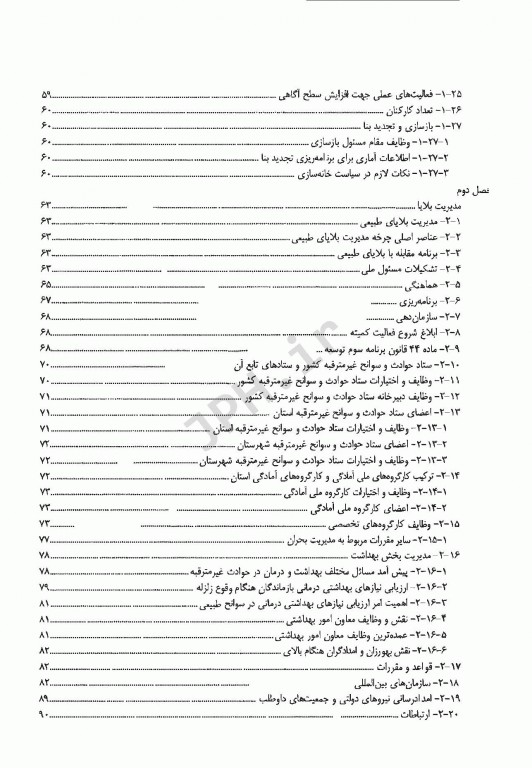 ۱-۲۵- فعالیت‌های عملی جهت افزایش سطح آگاهی ... ۵۹
۱-۲۶- تعداد کارکنان ... ۶۰
۱-۲۷- بازسازی و تجدید بنا ... ۶۰
۱-۲۷-۱- وظایف مقام مسئول بازسازی ... ۶۰
۱-۲۷-۲- اطلاعات آماری برای برنامه‌ریزی تجدید بنا ... ۶۰
۱-۲۷-۳- نکات لازم در سیاست خانه‌سازی ... ۶۰
فصل دوم
مدیریت بلایا ... ۶۳
۲-۱- مدیریت بلایای طبیعی ... ۶۳
۲-۲- عناصر اصلی چرخه مدیریت بلایای طبیعی ... ۶۳
۲-۳- برنامه مقابله با بلایای طبیعی ... ۶۳
۲-۴- تشکیلات مسئول ملی ... ۶۳
۲-۵- هماهنگی ... ۶۵
۲-۶- برنامه‌ریزی ... ۶۷
۲-۷- سازمان‌دهی ... ۶۸
۲-۸- ابلاغ شروع فعالیت کمیته ... ۶۸
۲-۹- ماده ۴۴ قانون برنامه سوم توسعه ... ۶۸
۲-۱۰- ستاد حوادث و سوانح غیرمترقبه کشور و ستادهای تابع آن ... ۷۰
۲-۱۱- وظایف و اختیارات ستاد حوادث و سوانح غیرمترقبه کشور ... ۷۰
۲-۱۲- وظایف دبیرخانه ستاد حوادث و سوانح غیرمترقبه کشور ... ۷۱
۲-۱۳- اعضای ستاد حوادث و سوانح غیرمترقبه استان ... ۷۱
۲-۱۳-۱- وظایف و اختیارات ستاد حوادث و سوانح غیرمترقبه استان ... ۷۱
۲-۱۳-۲- اعضای ستاد حوادث و سوانح غیرمترقبه شهرستان ... ۷۲
۲-۱۳-۳- وظایف و اختیارات ستاد حوادث و سوانح غیرمترقبه شهرستان ... ۷۲
۲-۱۴- ترکیب کارگروه‌های ملی آمادگی و کارگروه‌های آمادگی استان ... ۷۲
۲-۱۴-۱- وظایف و اختیارات کارگروه ملی آمادگی ... ۷۳
۲-۱۴-۲- اعضای کارگروه ملی آمادگی ... ۷۳
۲-۱۵- وظایف کارگروه‌های تخصصی ... ۷۳
۲-۱۵-۱- سایر مقررات مربوط به مدیریت بحران ... ۷۷
۲-۱۶- مدیریت بخش بهداشت ... ۷۸
۲-۱۶-۱- پیش آمد مسائل مختلف بهداشت و درمان در حوادث غیرمترقبه ... ۷۸
۲-۱۶-۲- ارزیابی نیازهای بهداشتی درمانی بازماندگان هنگام وقوع زلزله ... ۷۹
۲-۱۶-۳- اهمیت امر ارزیابی نیازهای بهداشتی درمانی در سوانح طبیعی ... ۸۱
۲-۱۶-۴- نقش و وظایف معاون امور بهداشتی ... ۸۱
۲-۱۶-۵- عمده‌ترین وظایف معاون امور بهداشتی ... ۸۱
۲-۱۶-۶- نقش بهورزان و امدادگران هنگام بالای ... ۸۲
۲-۱۷- قواعد و مقررات ... ۸۲
۲-۱۸- سازمان‌های بین‌المللی ... ۸۲
۲-۱۹- امدادرسانی نیروهای دولتی و جمعیت‌های داوطلب ... ۸۹
۲-۲۰- ارتباطات ... ۹۰
JPH.ir